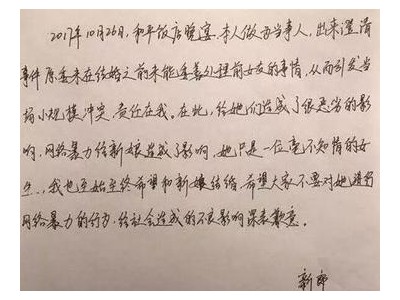 2017年10月26日,和平饭店晚宴,本人做为当事人,出来澄清
事件原委未在结婚之前未能妥善处理前女友的事情,从而引发当
场小规模冲突,责任在我。在此,给她们造成了很恶劣的影
响,网络暴力给新娘造成了影响,她只是一位毫不知情的女
生,我也至始至终希望和新娘结婚,希望大家不要对她进行
网络暴力的行为,给社会造成的不良影响深表歉意。
新郎